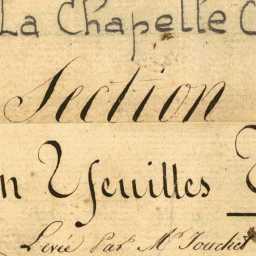 La Chapelle C
Section
n Feuilles
Levée Par Mr Touchet